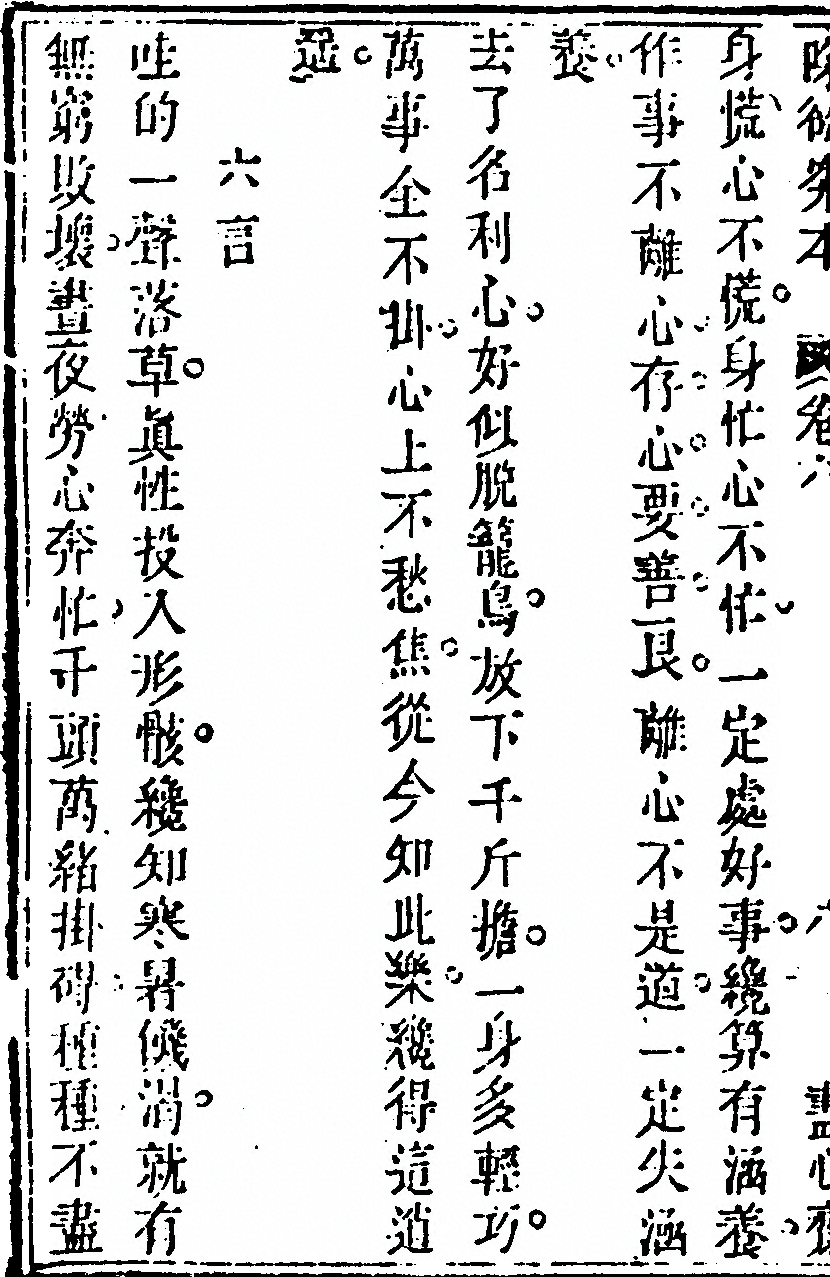 卷六
身慌心不慌身忙心不忙一定處好事纔算有涵養
作事不離心存心要善良離心不是道一定失涵
養
去了名利心好似脫籠鳥放下千斤擔一身多輕巧
萬事全不掛心上不愁焦從今知此樂纔得這逍
遥
六言
哇的一聲落草真性投入形骸纔知寒暑饑渴就有
無窮敗壞晝夜勞心奔忙千頭萬緒掛礙種種不盡